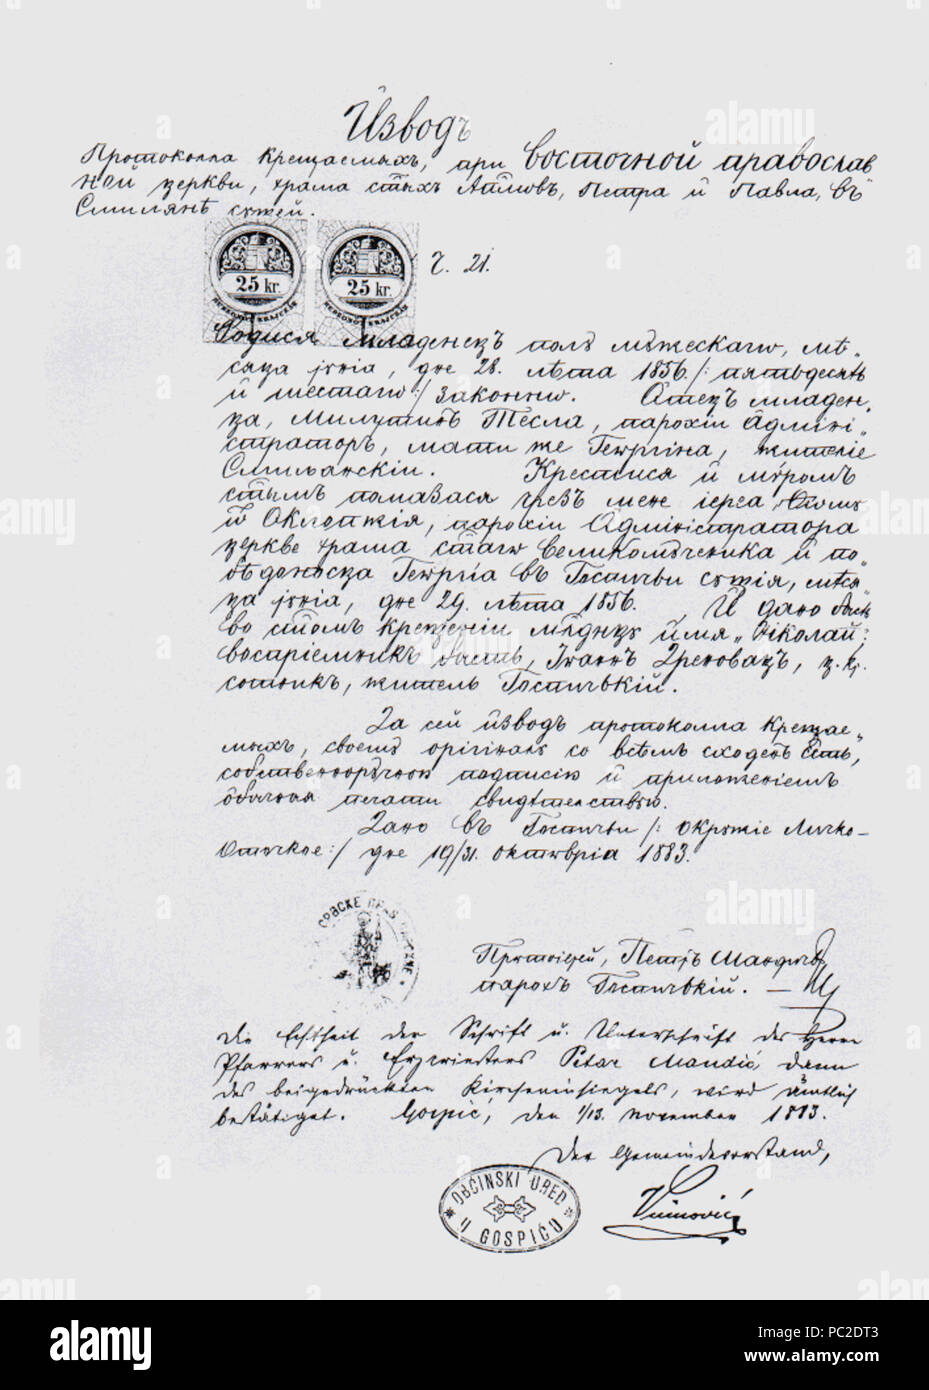 Изводъ
Протоколла Крещаемыхъ, при Восточной православ
ной церкви, храма стыхъ Апломъ, Петра и Павла, въ
Смилянѣ сущей.
25 kr. 25 kr. 21.
Родися младенецъ полъ мужескаго, мѣ„
сяца іюніа, дне 28. лѣта 1856. /: пятьдесятъ
и шестаго :/ законнѡ. Отецъ младен„
ца, Милутинъ Тесла, парохіи Адміні„
страторъ, мати же Геѡргіна, жителіе
Смилянскіи. Крестися и мѵромъ
стымъ помазася чрезъ мене іереа
Оклопжія, парохіи Адміністратора
церкве храма стагѡ великомученика и по„
бѣдоносца Геѡргіа въ Госпичьи сущія, мѣся„
ца іюніа, дне 29. лѣта 1856. И дано бысть
во стомъ крещеніи младенцу имя „Николай:
воспріемникъ бысть, Іѡаннъ Дреновацъ, ц. кр.
сотникъ, житель Госпичьскій.
За сей изводъ протоколла Крещае„
мыхъ, своему оріґіналу со всѣмъ сходенъ быть,
собственноручною подписію и приложеніемъ
обычныя печати свидѣтельствую.
Дано въ Госпичьи /: окружіе Личко-
Оточкое :/ дне 19/31. октѡвріа 1883.
СРБСКЕ
Протоіерей, Петръ Мандичъ
парохъ Госпичьскій. —
Die Echtheit der Schrift u. Unterschrift des Herrn
Pfarrers u. Erzpriesters Petar Mandić, dann
des beigedrückten Kircheninsiegels, wird ämtlich
bestätiget. Gospić, den 1/13. November 1883.
Der Gemeindevorstand,
OBĆINSKI URED
U GOSPIĆU
alamy
PC2DT3
www.alamy.com